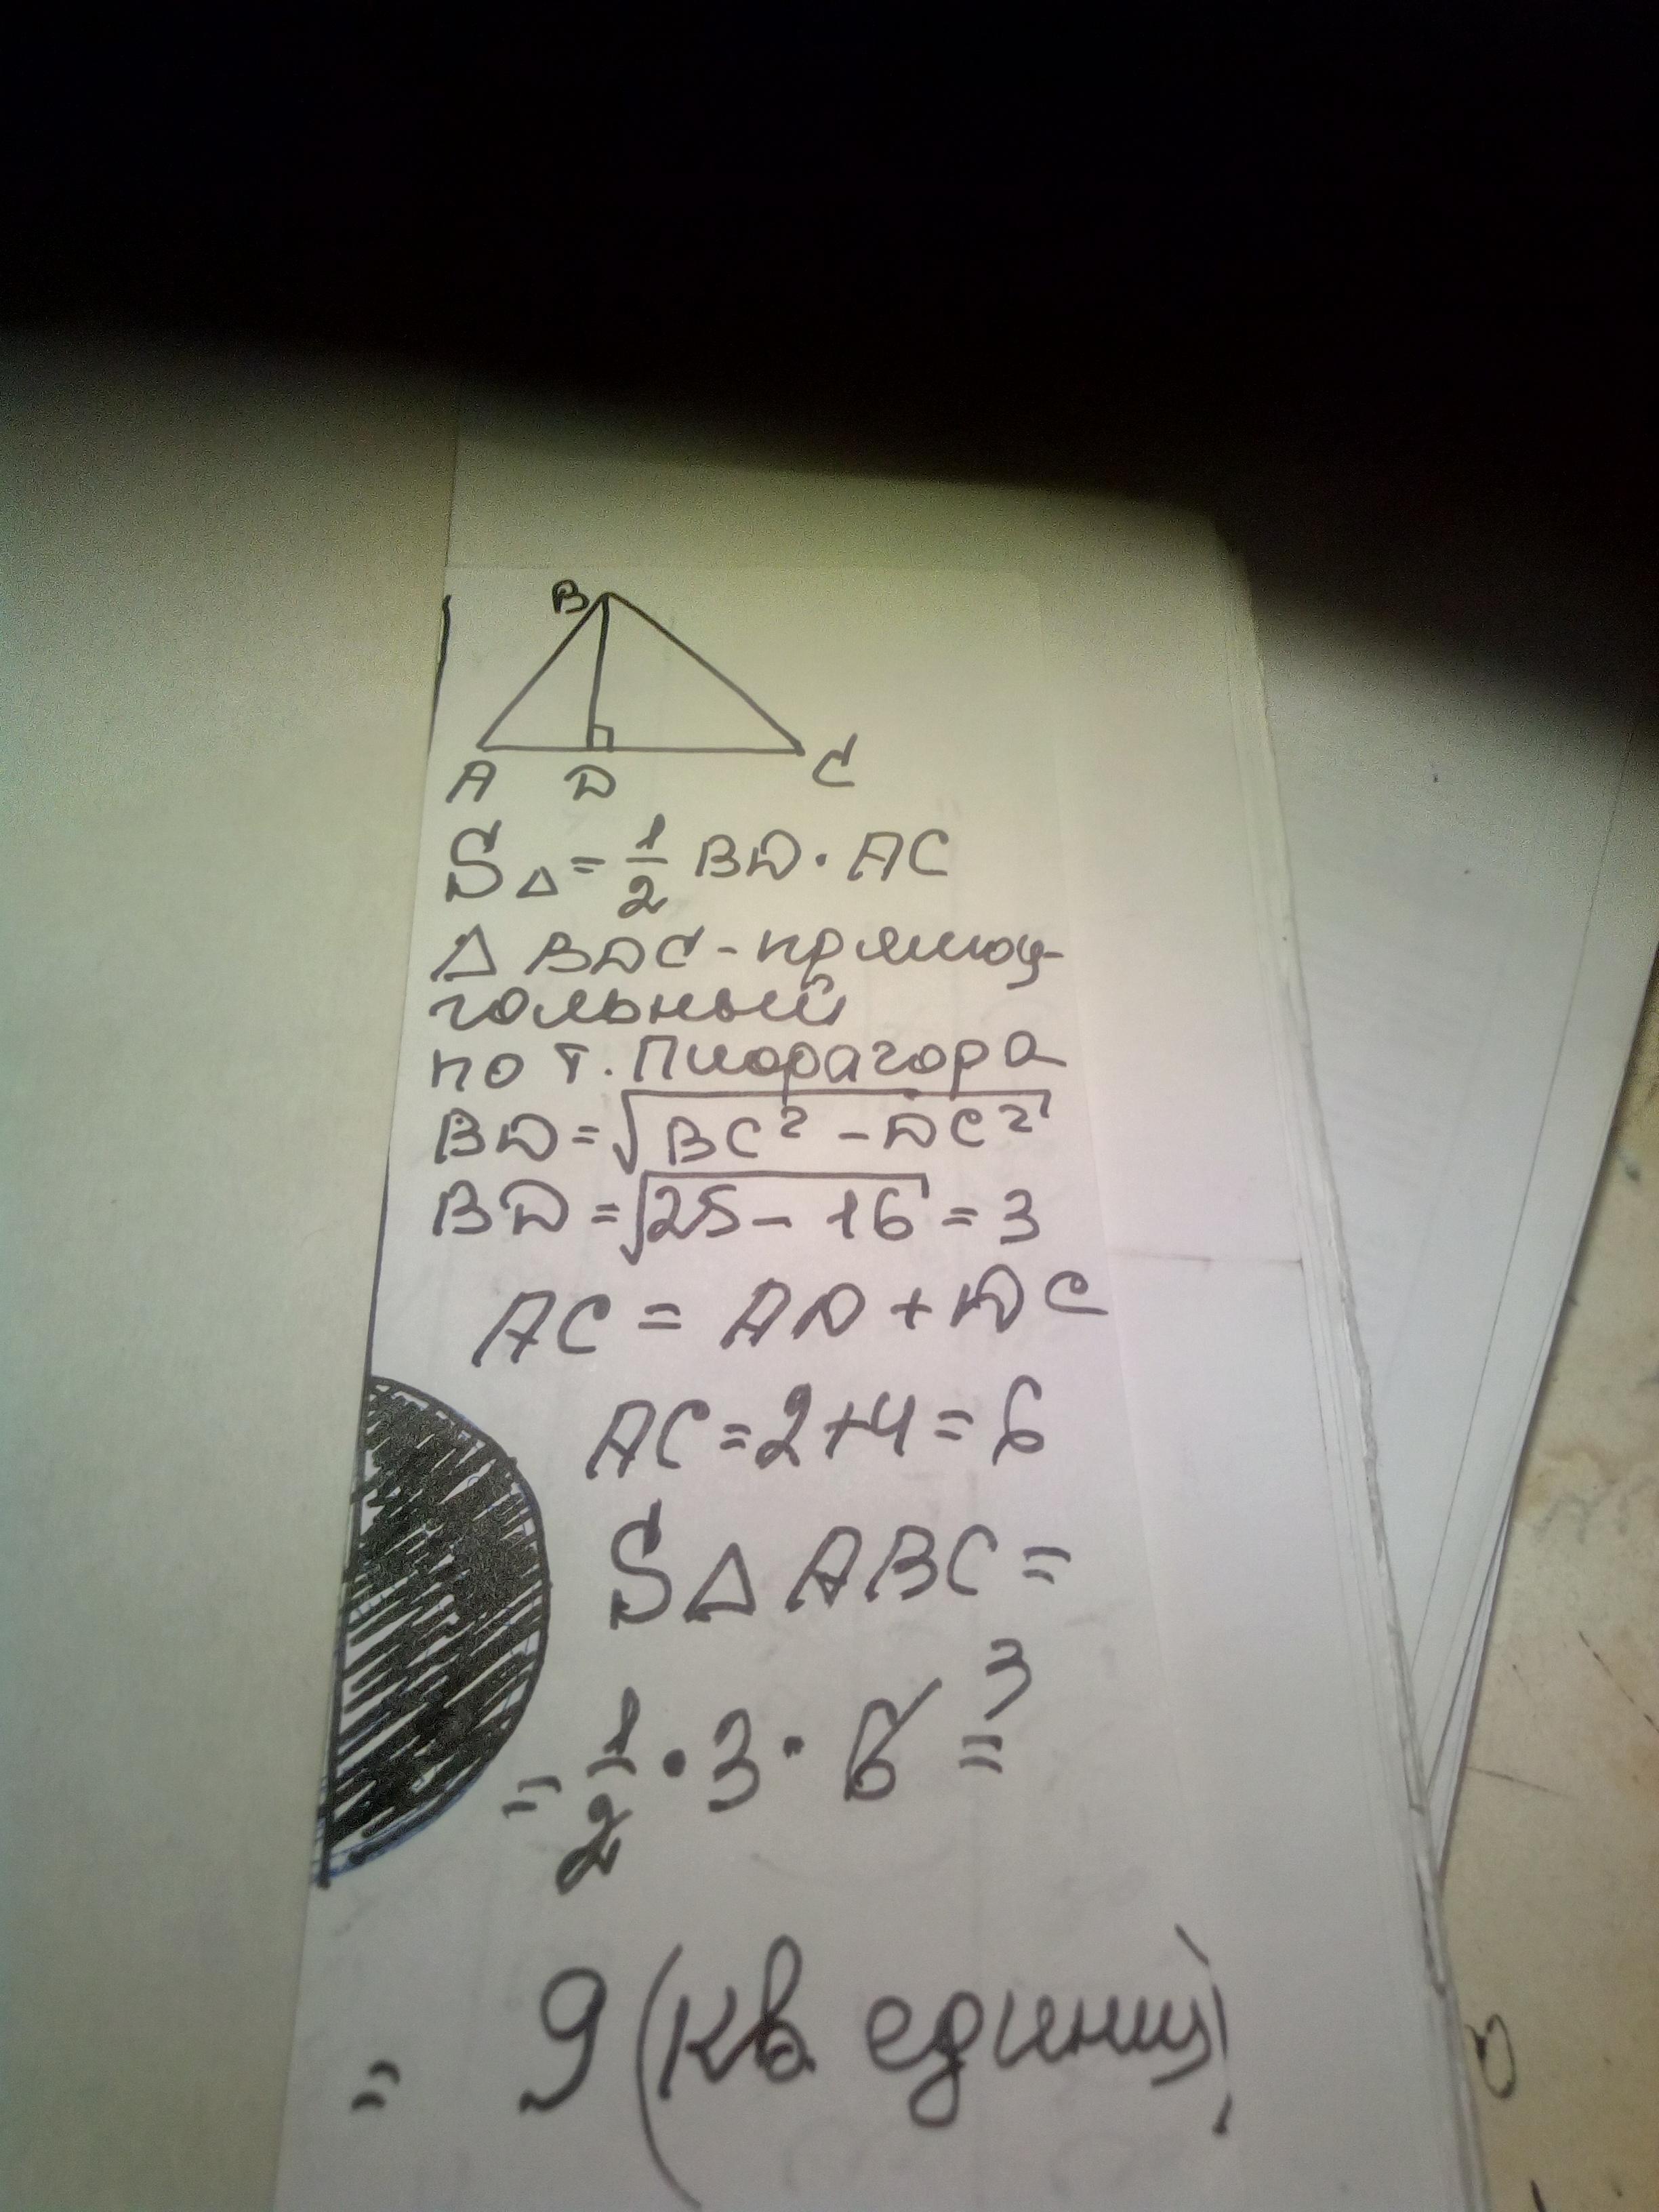 B
A D C
S△ = 1/2 BD · AC
△ BDC - прямоу-
гольный
по т. Пифрагора
BD = √(BC² - DC²)
BD = √(25 - 16) = 3
AC = AD + DC
AC = 2 + 4 = 6
S△ABC =
= 1/2 · 3 · 6 3 =
= 9 (кв единиц)